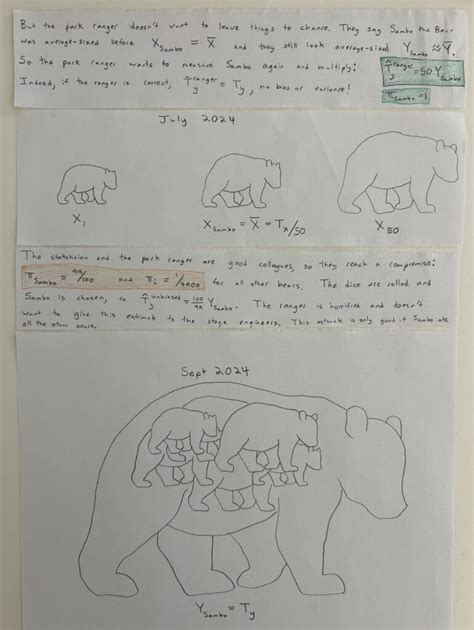 But the park ranger doesn't want to leave things to chance. They say Sambo the Bear
was average-sized before X_Sambo = X̄ and they still look average-sized Y_Sambo ≈ Ȳ.
So the park ranger wants to measure Sambo again and multiply: T̂_y^ranger = 50 Y_Sambo
Indeed, if the ranger is correct, T̂_y^ranger = T_y, no bias or variance! π_Sambo = 1
July 2024
X_1
X_Sambo = X̄ = T_x/50
X_50
The statistician and the park ranger are good colleagues, so they reach a compromise:
π_Sambo = 99/100 and π_i = 1/4900 for all other bears. The dice are rolled and
Sambo is chosen, so T̂_y^unbiased = 100/99 Y_Sambo. The ranger is horrified and doesn't
want to give this estimate to the stage engineers. This estimate is only good if Sambo ate
all the other bears.
Sept 2024
Y_Sambo = T_y